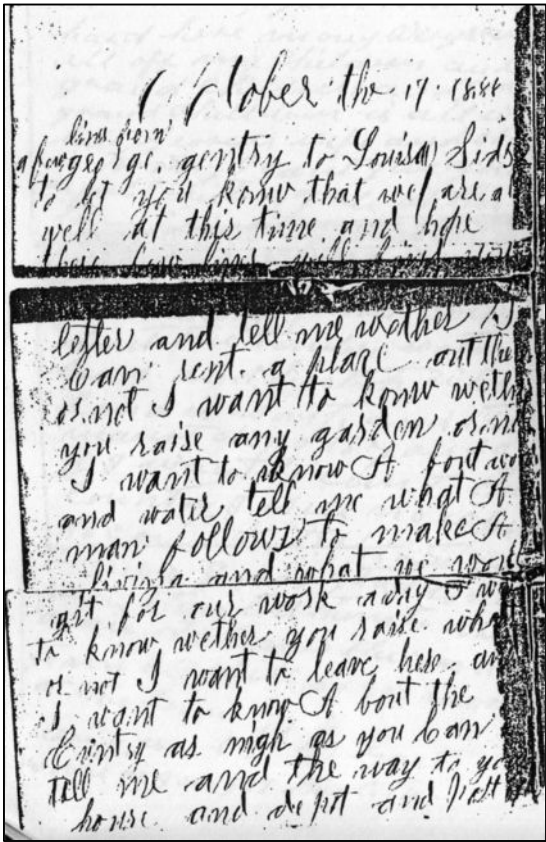 October the 17. 1888
lines from
a few george. gentry to Louisa Sids
to let you know that we are a
well at this time and hope
letter and tell me wether I
Can rent. a place out the
or not I want to know weth
you raise any garden or no
I want to know A bout
and water tell me what A
man follows to make A
living and what we
git for our work
to know wether you raise
or not I want to leave here an
I want to know A bout the
Cuntry as nigh as you Can
tell me and the way to yo
house and depot and